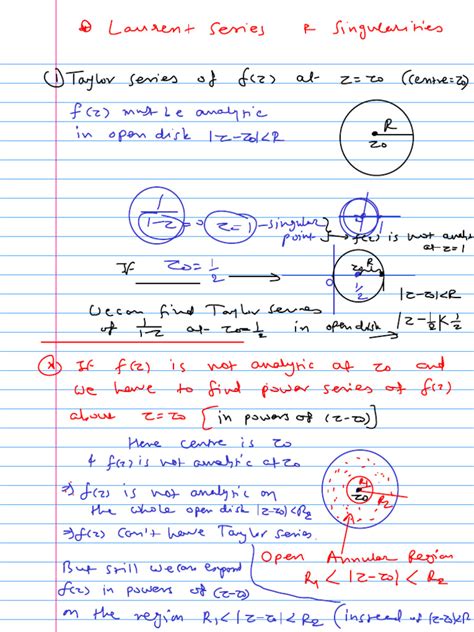 Laurent Series & Singularities
① Taylor series of f(z) at z=z0 (centre=z0)
f(z) must be analytic
in open disk |z-z0|<R
R
z0
1/(1-z) = z=1 - singular point → f(z) is not analytic at z=1
If z0=1/2 → 0 1/2 z0 R
|z-z0|<R
We can find Taylor series
of 1/(1-z) at z0=1/2 in open disk |z-1/2|<1/2
If f(z) is not analytic at z0 and
we have to find power series of f(z)
about z=z0 [in powers of (z-z0)]
Here centre is z0
& f(z) is not analytic at z0
⇒ f(z) is not analytic on
the whole open disk |z-z0|<R2
⇒ f(z) can't have Taylor series.
R1
z0
R2
Open Annular Region
R1<|z-z0|<R2
But still we can expand
f(z) in powers of (z-z0)
on the region R1<|z-z0|<R2 (instead of |z-z0|<R